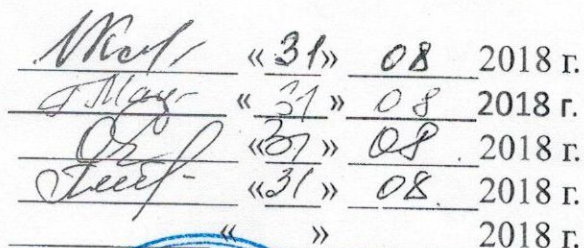 «31» 08 2018 г.
«31» 08 2018 г.
«31» 08. 2018 г.
«31» 08. 2018 г.
« » 2018 г.